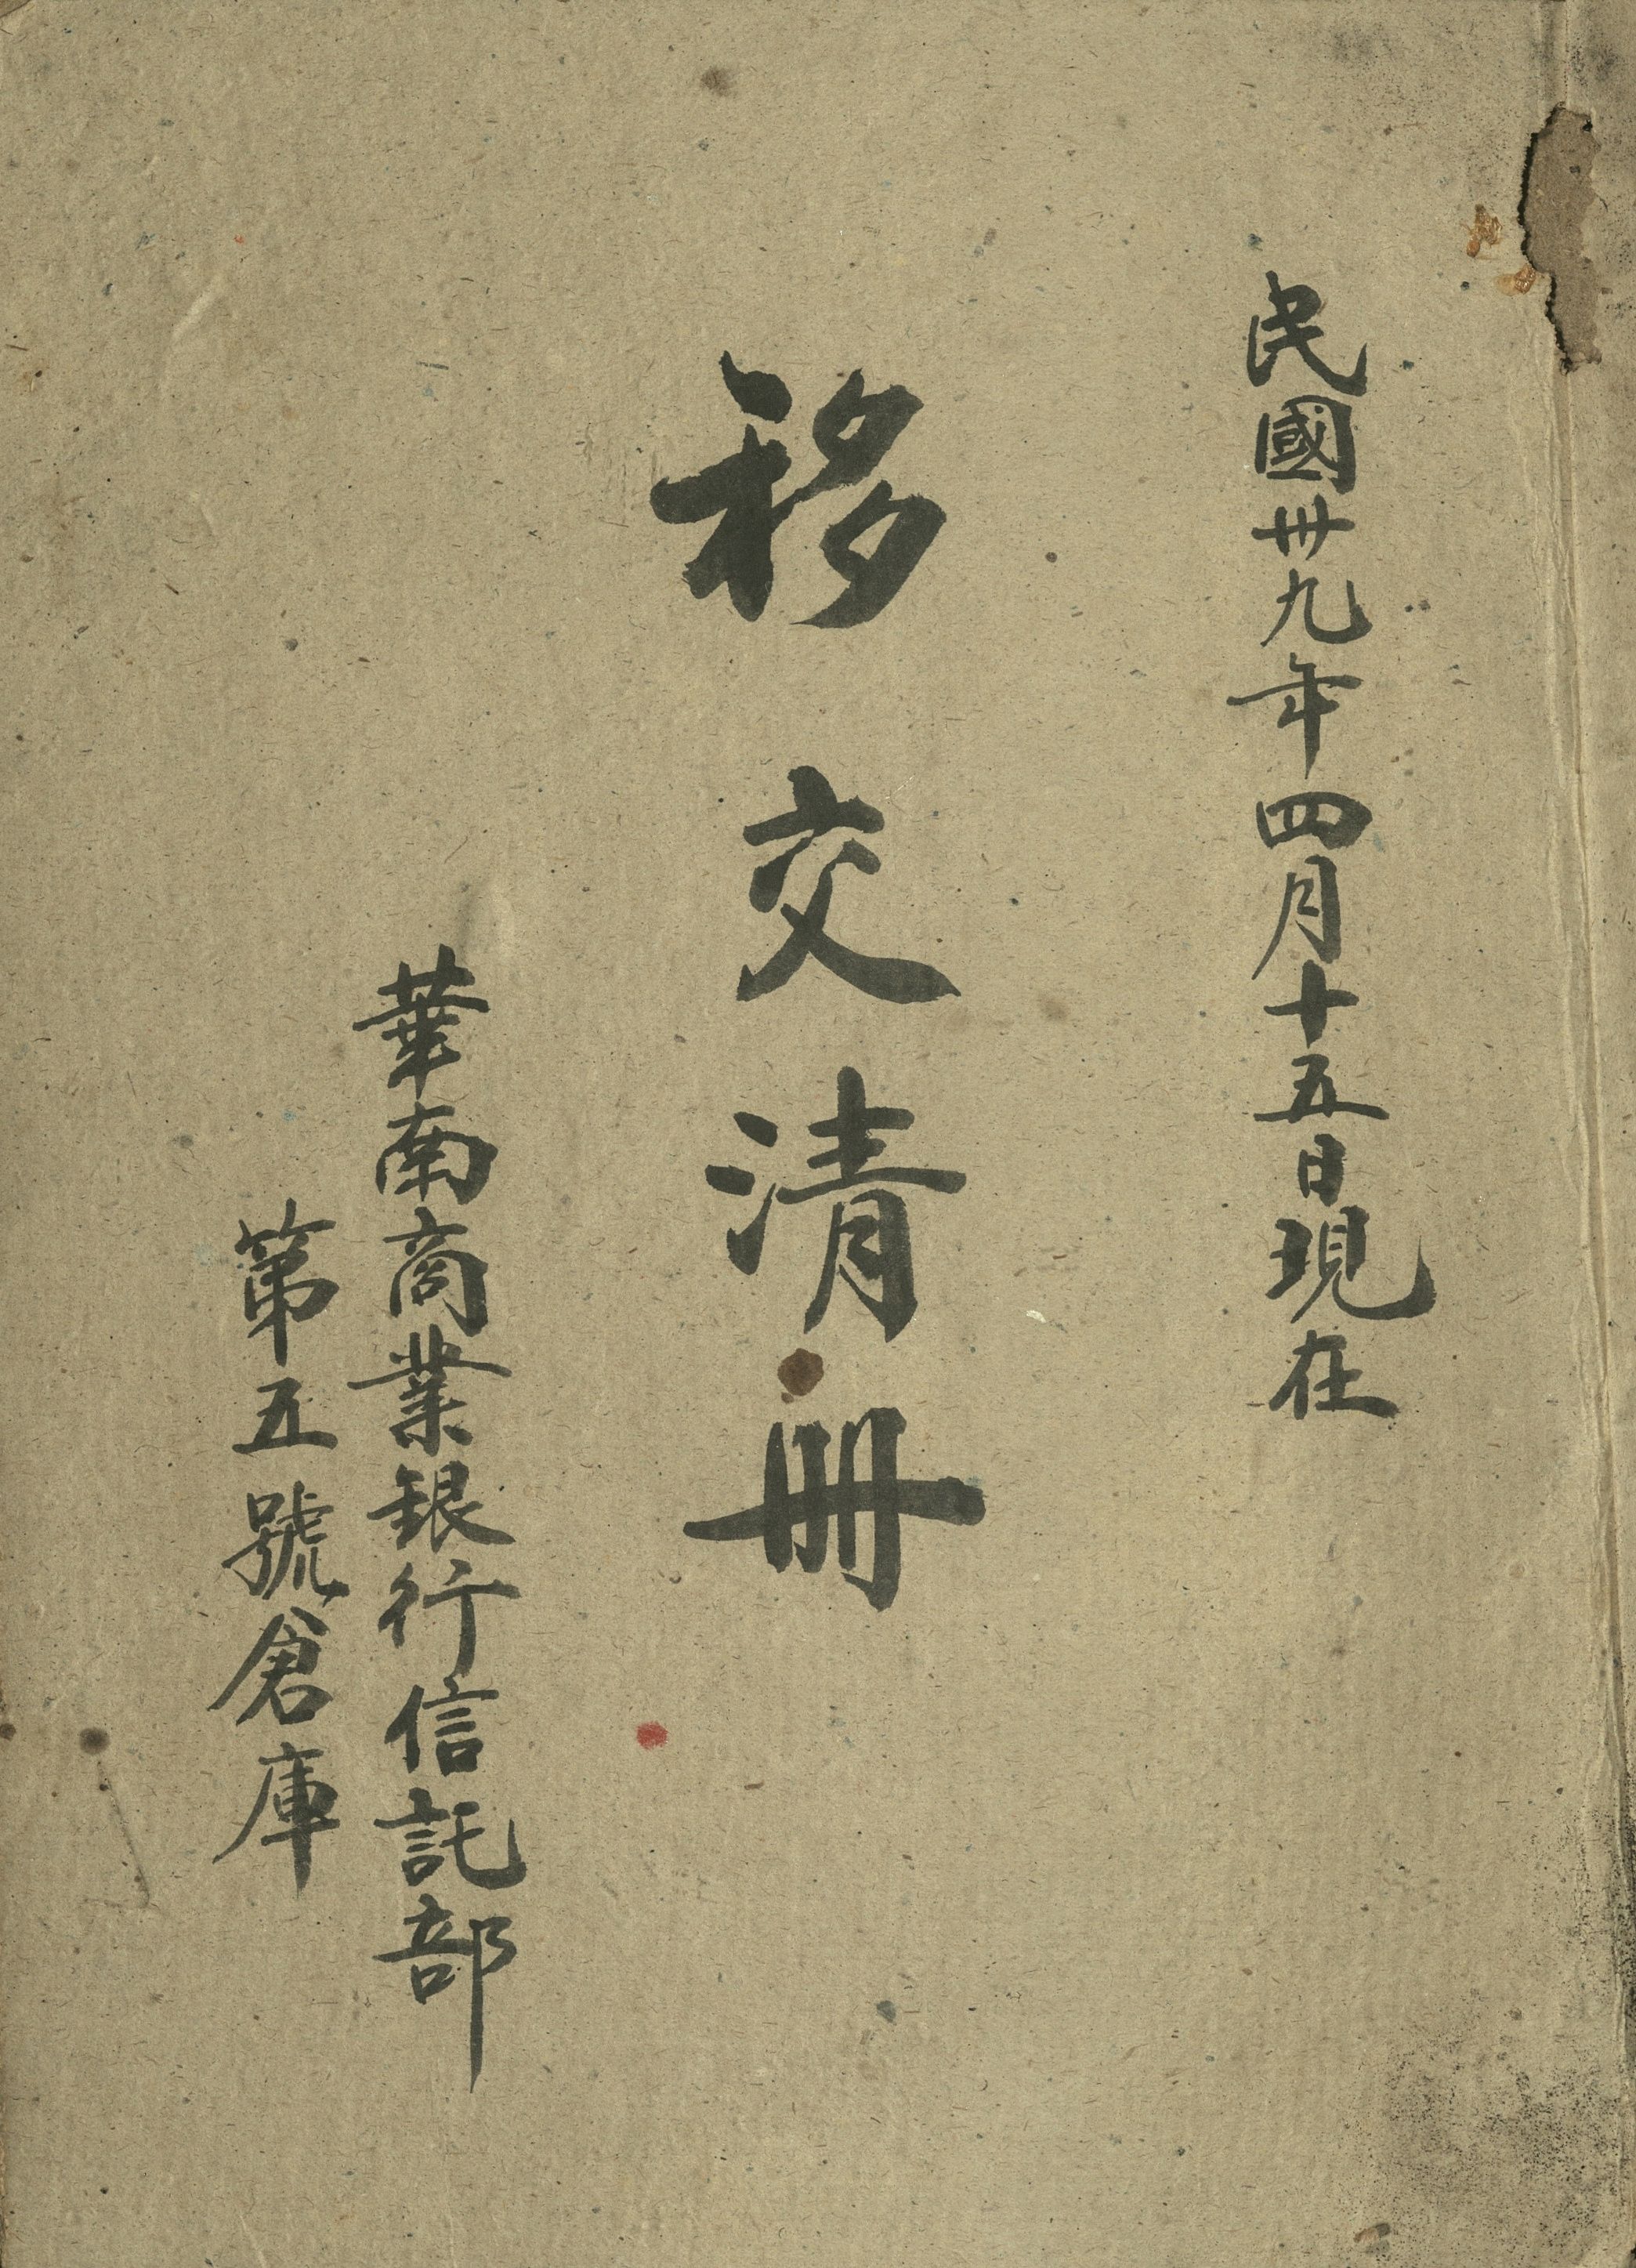 民國卅九年四月十五日現在
移交清冊
華南商業銀行信託部
第五號倉庫